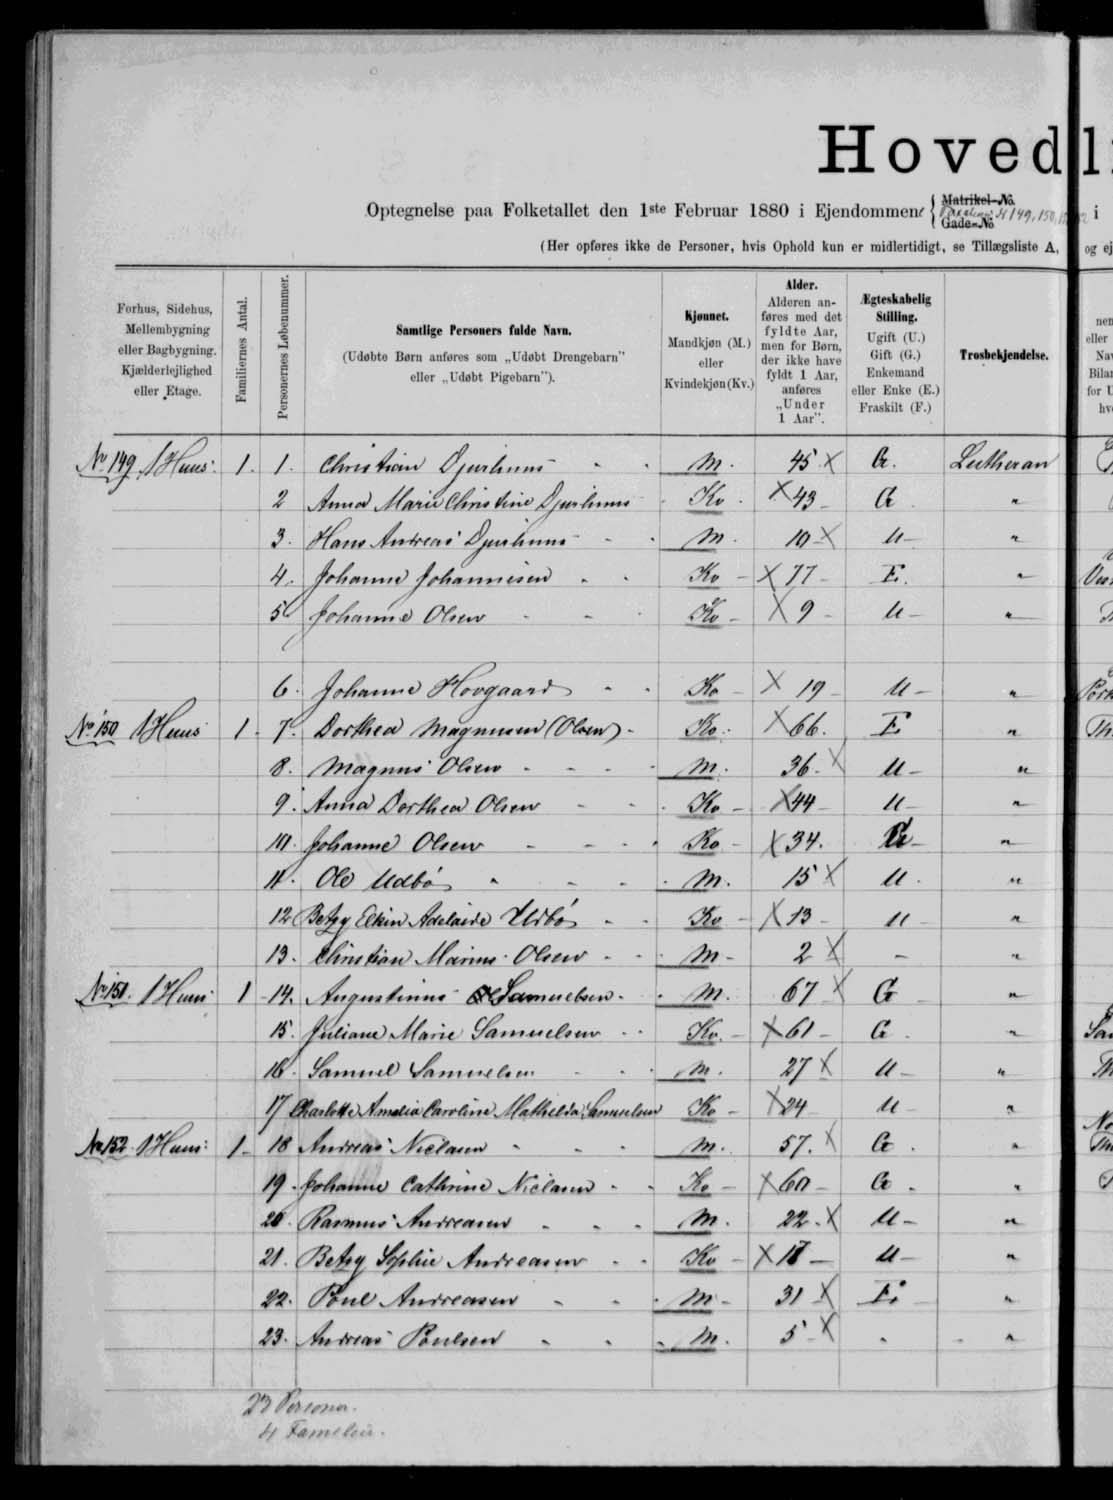 Hovedl
Optegnelse paa Folketallet den 1ste Februar 1880 i Ejendommene { Matrikel-No. Gade-No. 149, 150, i
(Her opføres ikke de Personer, hvis Ophold kun er midlertidigt, se Tillægsliste A, og ej
Forhus, Sidehus, Mellembygning eller Bagbygning. Kjælderlejlighed eller Etage.
Familiernes Antal.
Personernes Løbenummer.
Samtlige Personers fulde Navn.
(Udøbte Børn anføres som „Udøbt Drengebarn" eller „Udøbt Pigebarn").
Kjønnet.
Mandkjøn (M.) eller Kvindekjøn (Kv.)
Alder.
Alderen anføres med det fyldte Aar, men for Børn, der ikke have fyldt 1 Aar, anføres „Under 1 Aar".
Ægteskabelig Stilling.
Ugift (U.) Gift (G.) Enkemand eller Enke (E.) Fraskilt (F.)
Trosbekjendelse.
No 149 1 Huus 1. 1. Christian Djurhuus M. 45 X G. Lutheran
2 Anna Marie Christine Djurhuus Kv. X 43 G. "
3. Hans Andreas Djurhuus M. 10 X U "
4. Johanne Johannesen Kv X 77 E. "
5. Johanne Olsen Kv X 9 U "
6. Johanne Hovgaard Kv X 19 U "
No 150 1 Huus 1. 7. Dorthea Magnusen (Olsen) Kv. X 66. E "
8. Magnus Olsen M. 36. X U "
9. Anna Dorthea Olsen Kv X 44 U "
10. Johanne Olsen Kv X 34. G "
11. Ole Udbö M. 15 X U. "
12 Betzy Elkin Adelaide Udbö Kv X 13 U "
13. Christian Marius Olsen M 2 X - "
No 151. 1 Huus 1 14. Augustinus Samuelsen M. 67 X G "
15. Juliane Marie Samuelsen Kv. X 61 G. "
16. Samuel Samuelsen M. 27 X U "
17 Charlotte Amalia Caroline Mathilda Samuelsen Kv X 24 U "
No 152. 1 Huus: 1. 18 Andreas Niclasen M. 57. X G. "
19. Johanne Cathrine Niclasen Kv X 60 G. "
20. Rasmus Andreasen M. 22. X U "
21. Betzy Sophie Andreasen Kv X U "
22. Poul Andreasen M 31 X E. "
23. Andreas Poulsen M. 5 X "
23 Personer.
4 Familier.